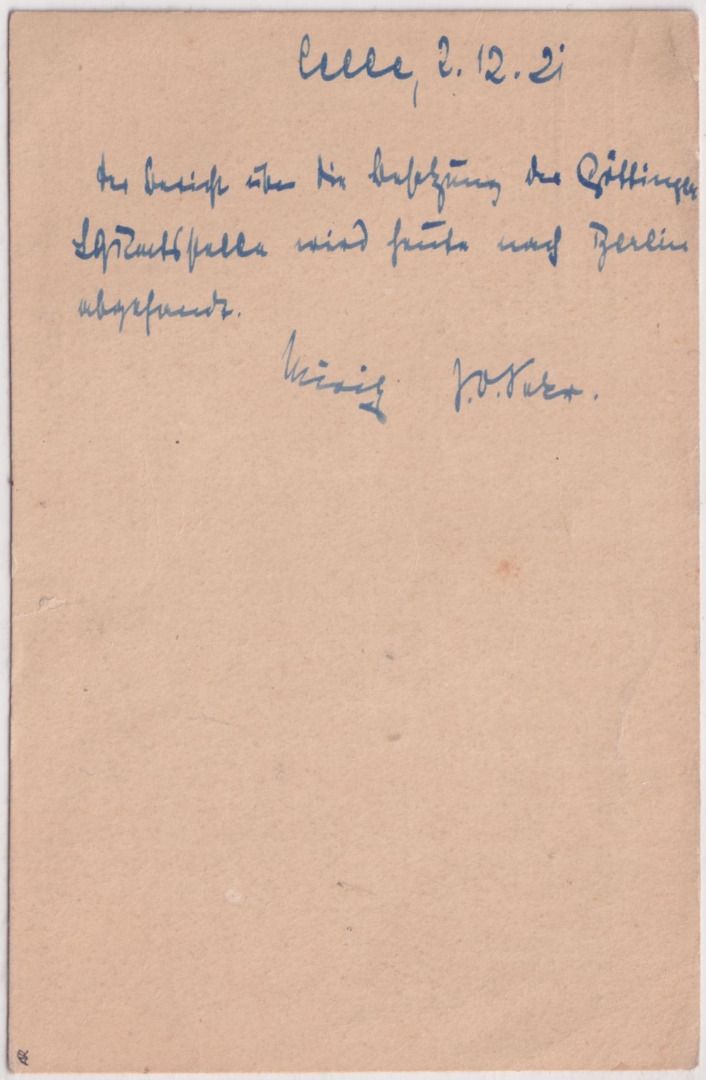 Celle, 2.12.21
Der Bericht über die Besetzung der Göttinger
LGRatsstelle wird heute nach Berlin
abgesandt.